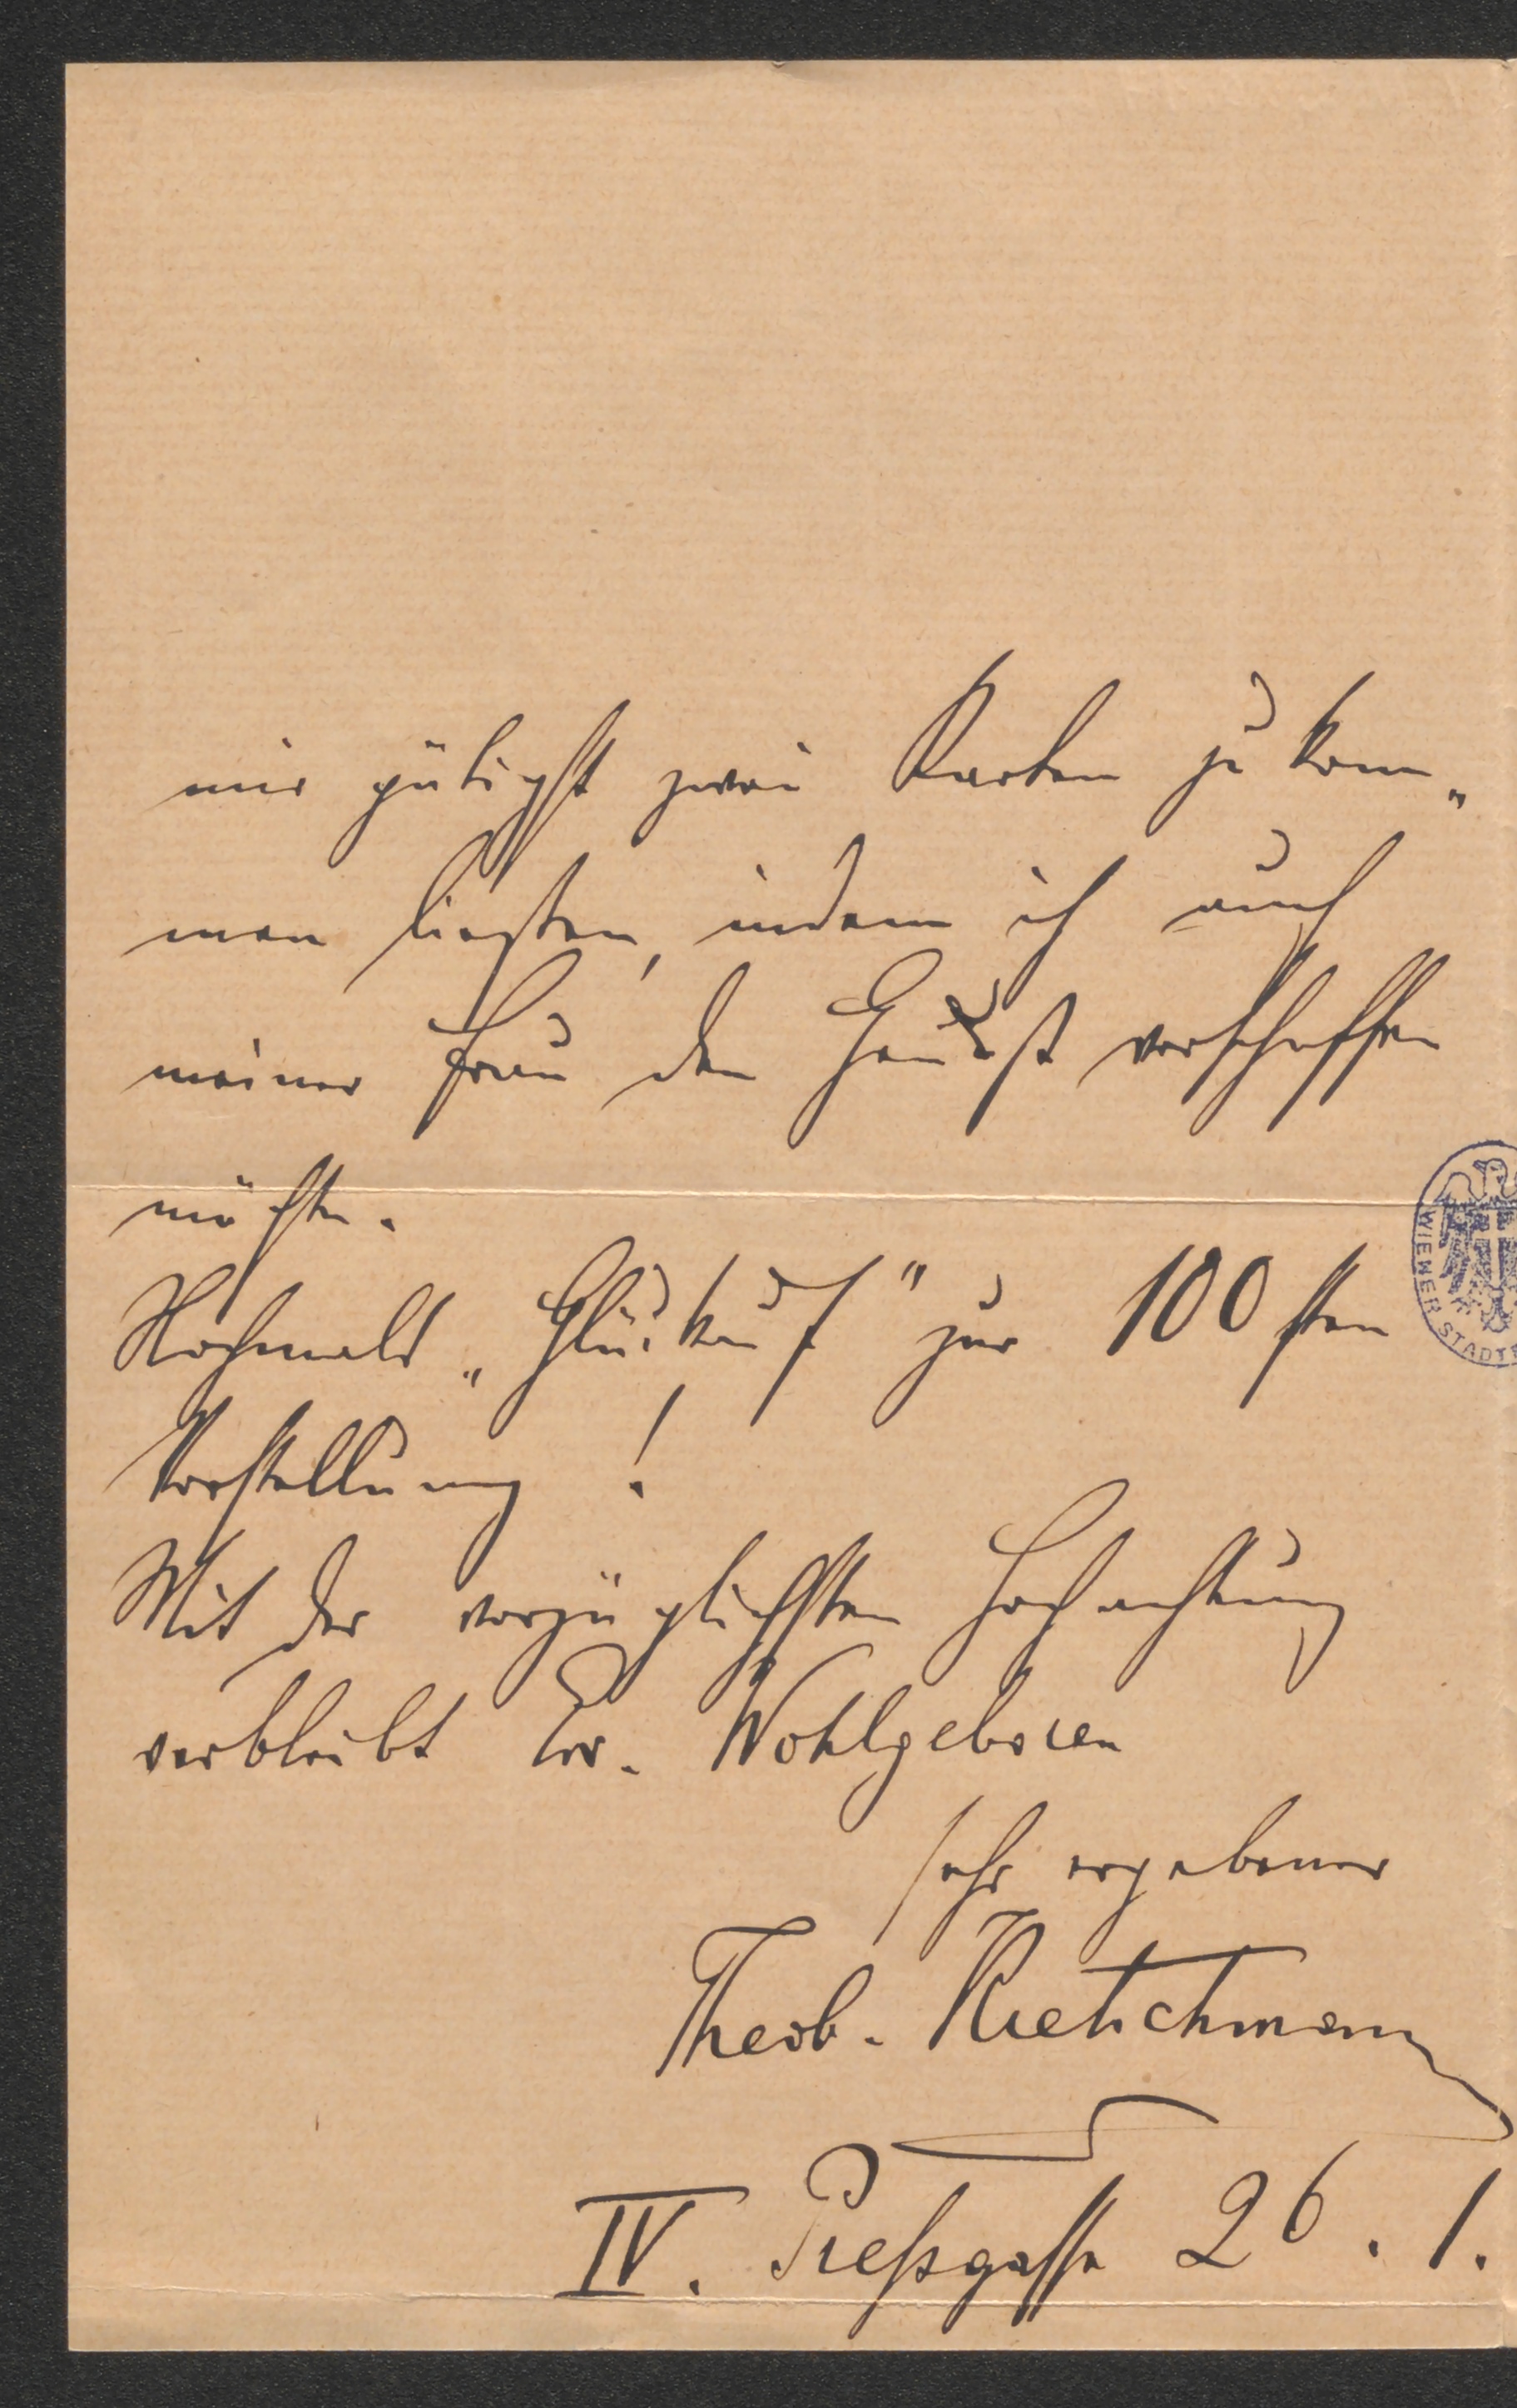 mir gütigst zwei Karten zu kom„
men ließen, indem ich auch
meiner Frau den Genuß verschaffen
möchte.
Nochmals „Glückauf“ zur 100sten
Vorstellung!
Mit der vorzüglichsten Hochachtung
verbleibt Ew. Wohlgeboren
sehr ergebener
Theob. Kretschmann
IV. Preßgasse 26. 1.
WIENER STADT